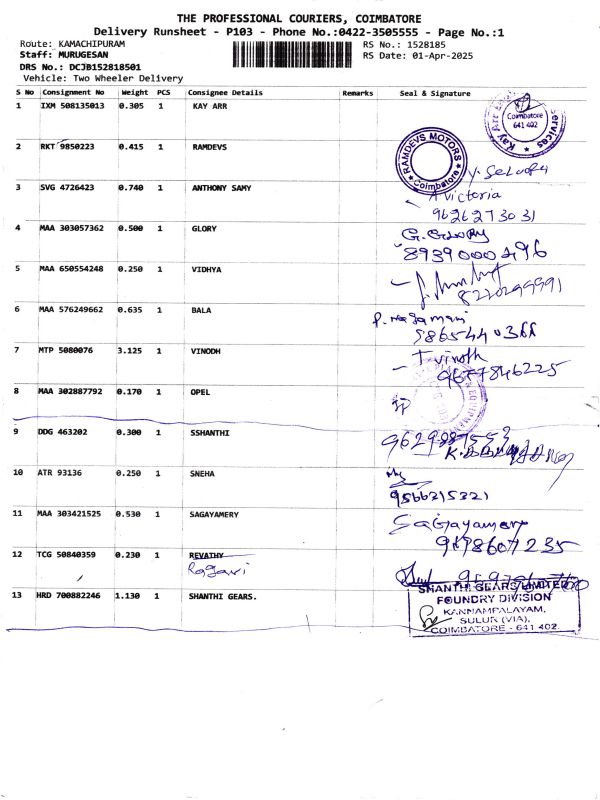 THE PROFESSIONAL COURIERS, COIMBATORE
Delivery Runsheet - P103 - Phone No.:0422-3505555 - Page No.:1
Route: KAMACHIPURAM RS No.: 1528185
Staff: MURUGESAN RS Date: 01-Apr-2025
DRS No.: DCJB152818501
Vehicle: Two Wheeler Delivery
S No Consignment No Weight PCS Consignee Details Remarks Seal & Signature
1 IXM 508135013 0.305 1 KAY ARR
Coimbatore
641 402
2 RKT 9850223 0.415 1 RAMDEVS
RAMDEVS MOTORS
Coimbatore
3 SVG 4726423 0.740 1 ANTHONY SAMY
A victoria
9626273031
4 MAA 303057362 0.500 1 GLORY
G. Glory
8939000496
5 MAA 650554248 0.250 1 VIDHYA
6 MAA 576249662 0.635 1 BALA
P. nagamani
7 MTP 5080076 3.125 1 VINODH
T vinoth
9677846225
8 MAA 302887792 0.170 1 OPEL
9 DDG 463202 0.300 1 SSHANTHI
10 ATR 93136 0.250 1 SNEHA
9566215321
11 MAA 303421525 0.530 1 SAGAYAMERY
Sagayamery
12 TCG 50840359 0.230 1 REVATHY
Ragavi
13 HRD 700882246 1.130 1 SHANTHI GEARS.
SHANTHI GEARS LIMITED
FOUNDRY DIVISION
KANNAMPALAYAM,
SULUR (VIA),
COIMBATORE - 641 402.